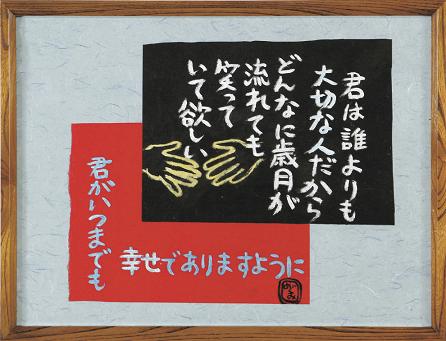 君は誰よりも
大切な人だから
どんなに歳月が
流れても
笑って
いて欲しい
君がいつまでも
幸せでありますように